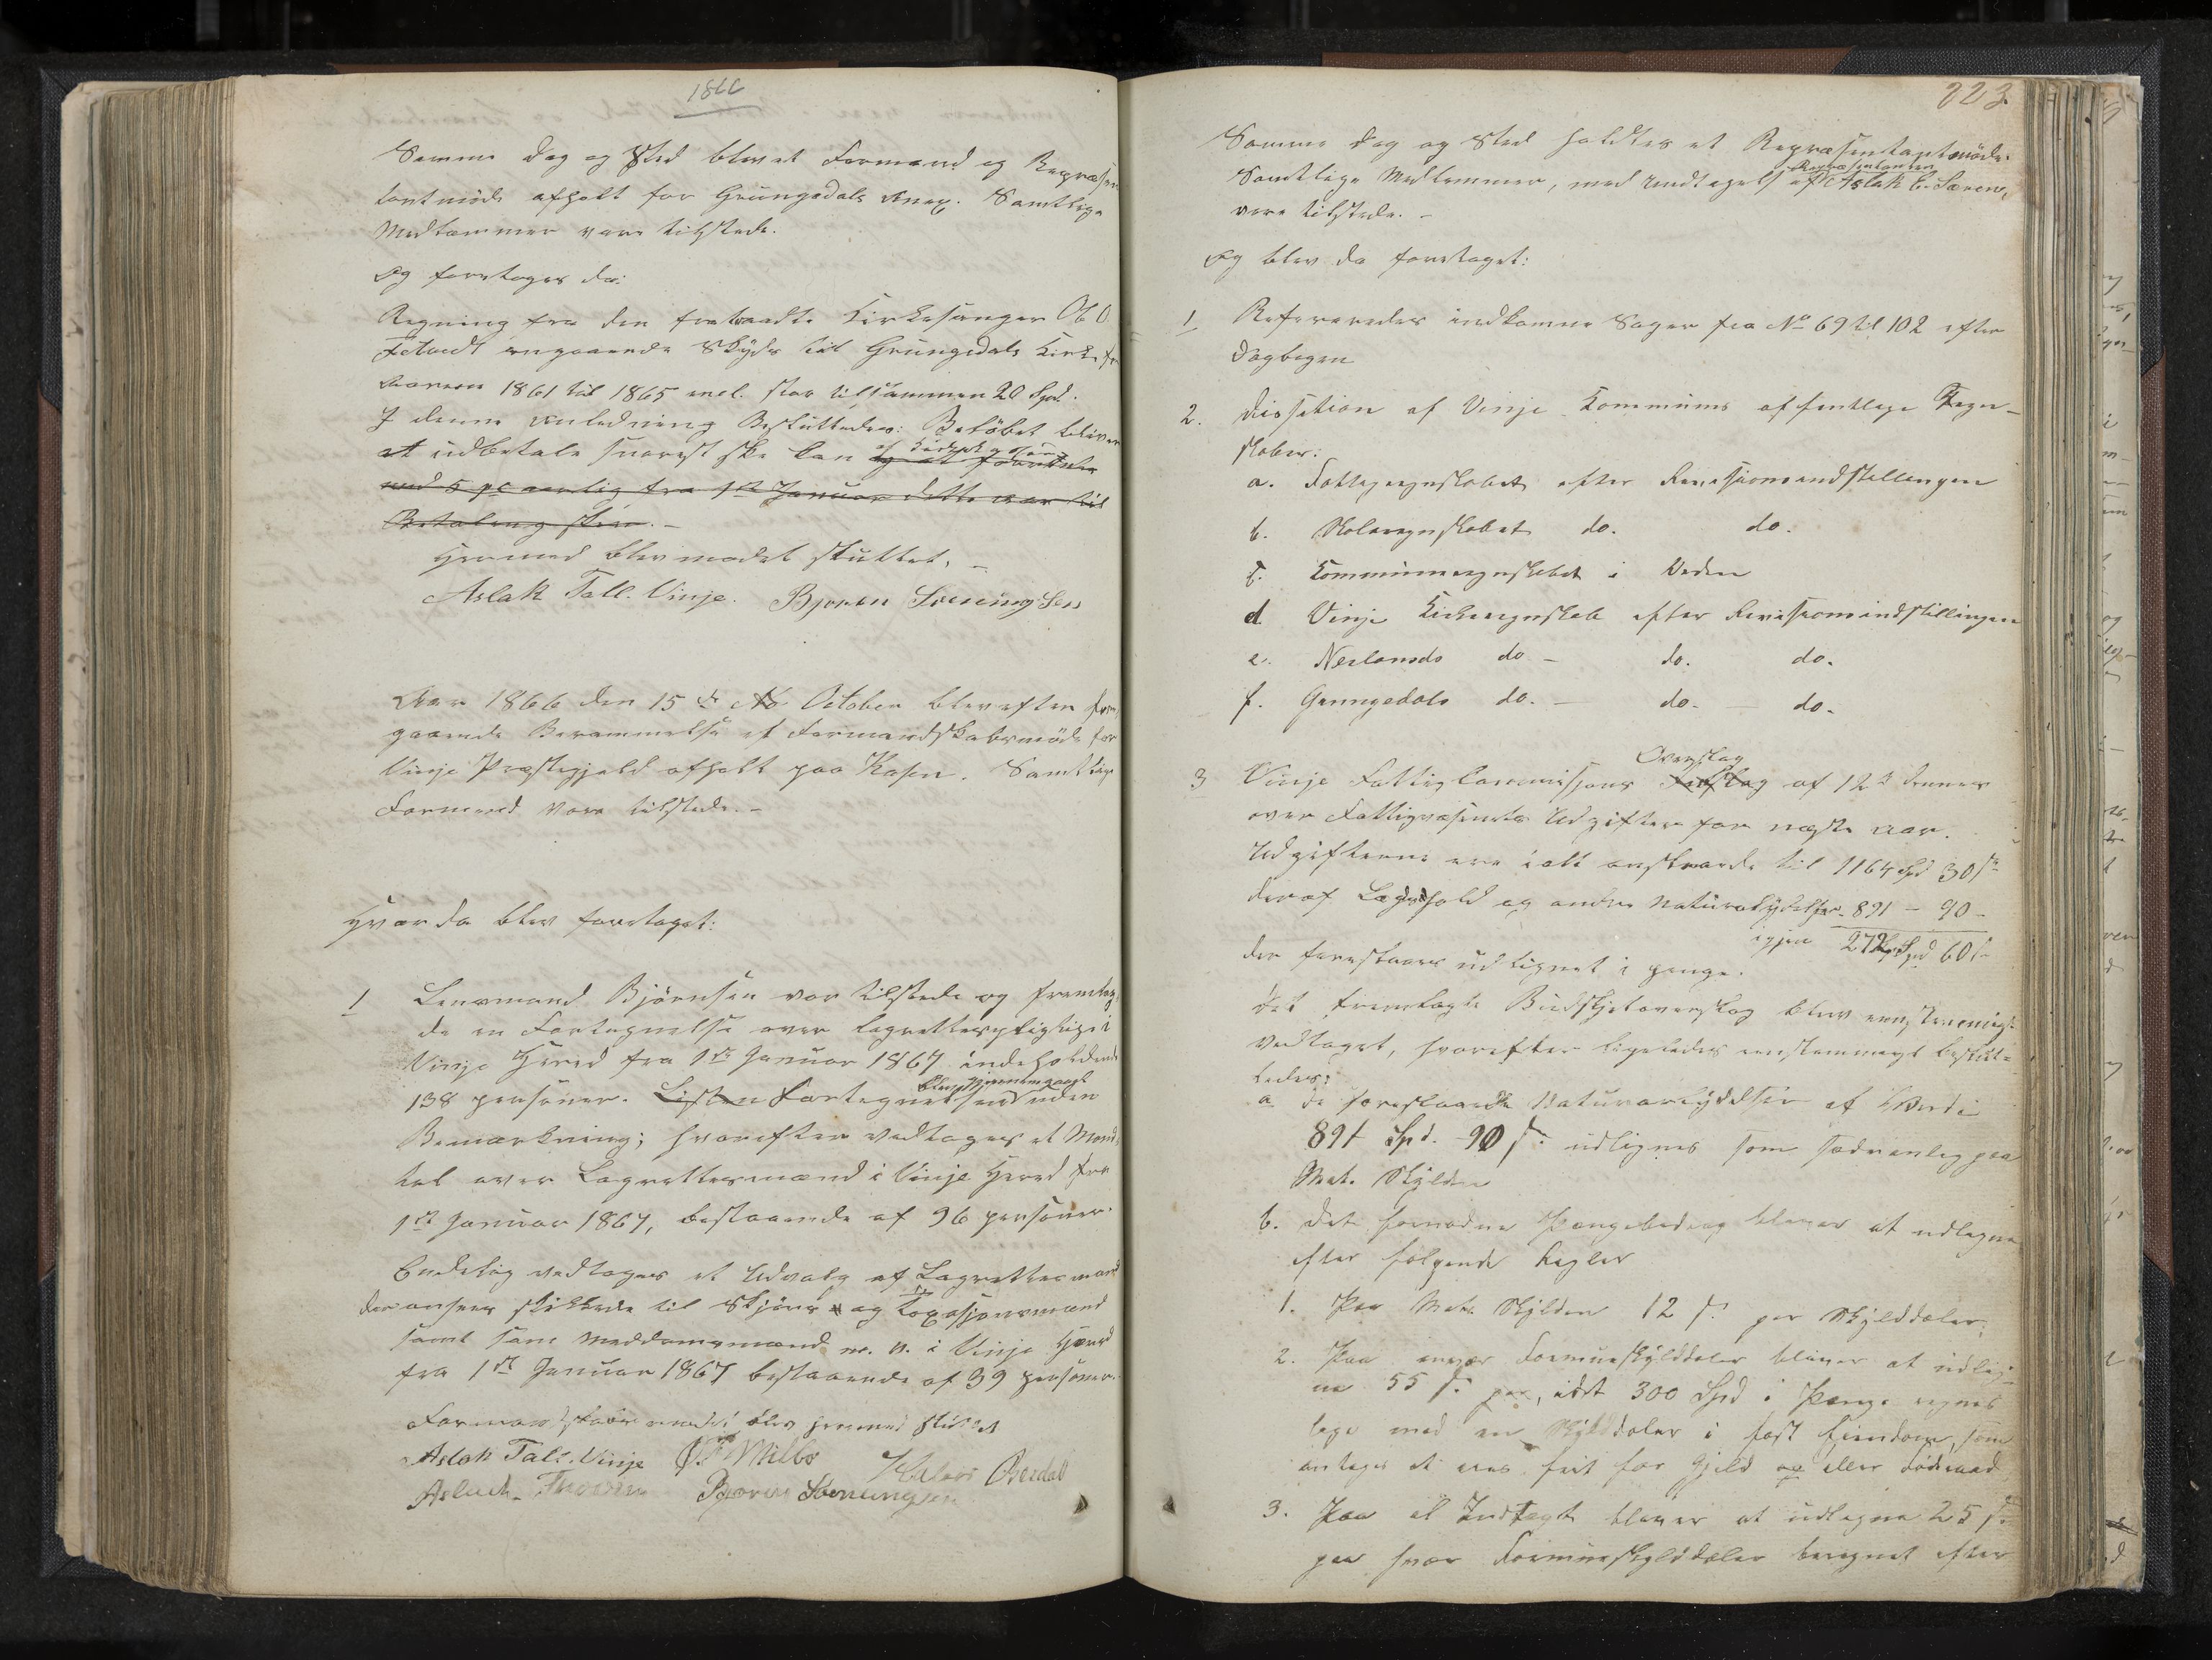 1866
Samme Dag og Sted blev et Formand og Repræsen
tantmøde afholt for Grungedals Anex. Samtlige
Medlemmer vare tilstede.
Og foretoges da:
Regning fra den fratraadte Kirkesanger Ol O
angaaende Skyds til Grungedals Kirke fr
Aarene 1861 til 1865 incl. stor tilsammen 20 Spd.
I denne Anledning Besluttedes: Beløbet bliver
at udbetale snarest ske kan af
med 5 pc aarlig fra 1ste Januar dette Aar til
Betaling sker. -
Hermed blev mødet sluttet. -
Aslak Tall. Vinje. Bjoren Soeningsen
Aar 1866 den 15de No October blev efter fore
gaaende Berammelse et Formandskabsmøde for
Vinje Præstegjeld afholt paa Kasen. Samtlige
Formænd vare tilstede. -
Hvor da blev foretaget:
1 Lensmand Bjørnsen var tilstede og fremlag
de en Fortegnelse over lagrettespligtige i
Vinje Hered fra 1ste Januar 1867 indeholdende
blev gjennemgaaet
138 personer. Listen Fortegnelsen uden
Bemærkning; hvorefter vedtoges et Mand
tal over Lagrettesmænd i Vinje Hered fra
1ste Januar 1867, bestaaende af 96 personer.
Endelig vedtoges et Udvalg af Lagrettesmænd
der ansees skikkede til Skjøns og Taxasjonsmænd
samt som Meddomsmænd m. v. i Vinje Hered
fra 1ste Januar 1867 bestaaende af 39 personer.
Formandskabsmødet blev hermed sluttet
Aslak Tall. Vinje Milbo
Aslach Bjoren Soeningsen
223
Samme Dag og Sted holdtes et Repræsentantmøde.
Repræsentanten
Samtlige Medlemmer, med Undtagelse af Aslak E. Særen,
vare tilstede. -
Og blev da foretaget:
1 Refereredes indkomne Sager fra No 69 til 102 efter
Dagbogen
2. Dissition af Vinje Kommuns offentlige Regn-
skaber:
a. Fattigregnskabet efter Revisionsindstillingen
b. Skoleregnskabet do. do.
c. Kommuneregnskabet i
d. Vinje Kirkeregnskab efter Revisionsindstillingen
e. Neslands do - do. do.
f. Grungedals do. - do. - do.
Overslag
3 Vinje Fattigkommissjons Forslag af 12te dennes
over Fattigvæsenets Udgifter for næste Aar.
Udgifterne ere ialt anslaaede til 1164 Spd 30 s
deraf Lægdhold og andre Naturalydelser 891 - 90 -
igjen 272 Spd 60 s
der foreslaaes udlignet i penge.
Det fremlagte Budskjetoverslag blev eenstemmigt
vedtaget, hvorefter ligeledes eenstemmigt beslut-
tedes:
a De foreslaaede Naturalydelser af Værdi
891 Spd. 90 s. udlignes som sædvanlig paa
Mat. Skylden
b. Det fornødne Pengebidrag bliver at udligne
efter følgende Regler
1. Paa Mat. Skylden 12 s. per Skylddaler;
2. Paa enhver Formueskylddaler bliver at udlig-
ne 55 s. idet 300 Spd i Penge regnes
lige med en Skylddaler i fast Eiendom, som
antages at være frit for Gjeld og eller Føderaad
3. Paa al Indtægt bliver at udligne 25 s.
paa hver Formueskylddaler beregnet efter